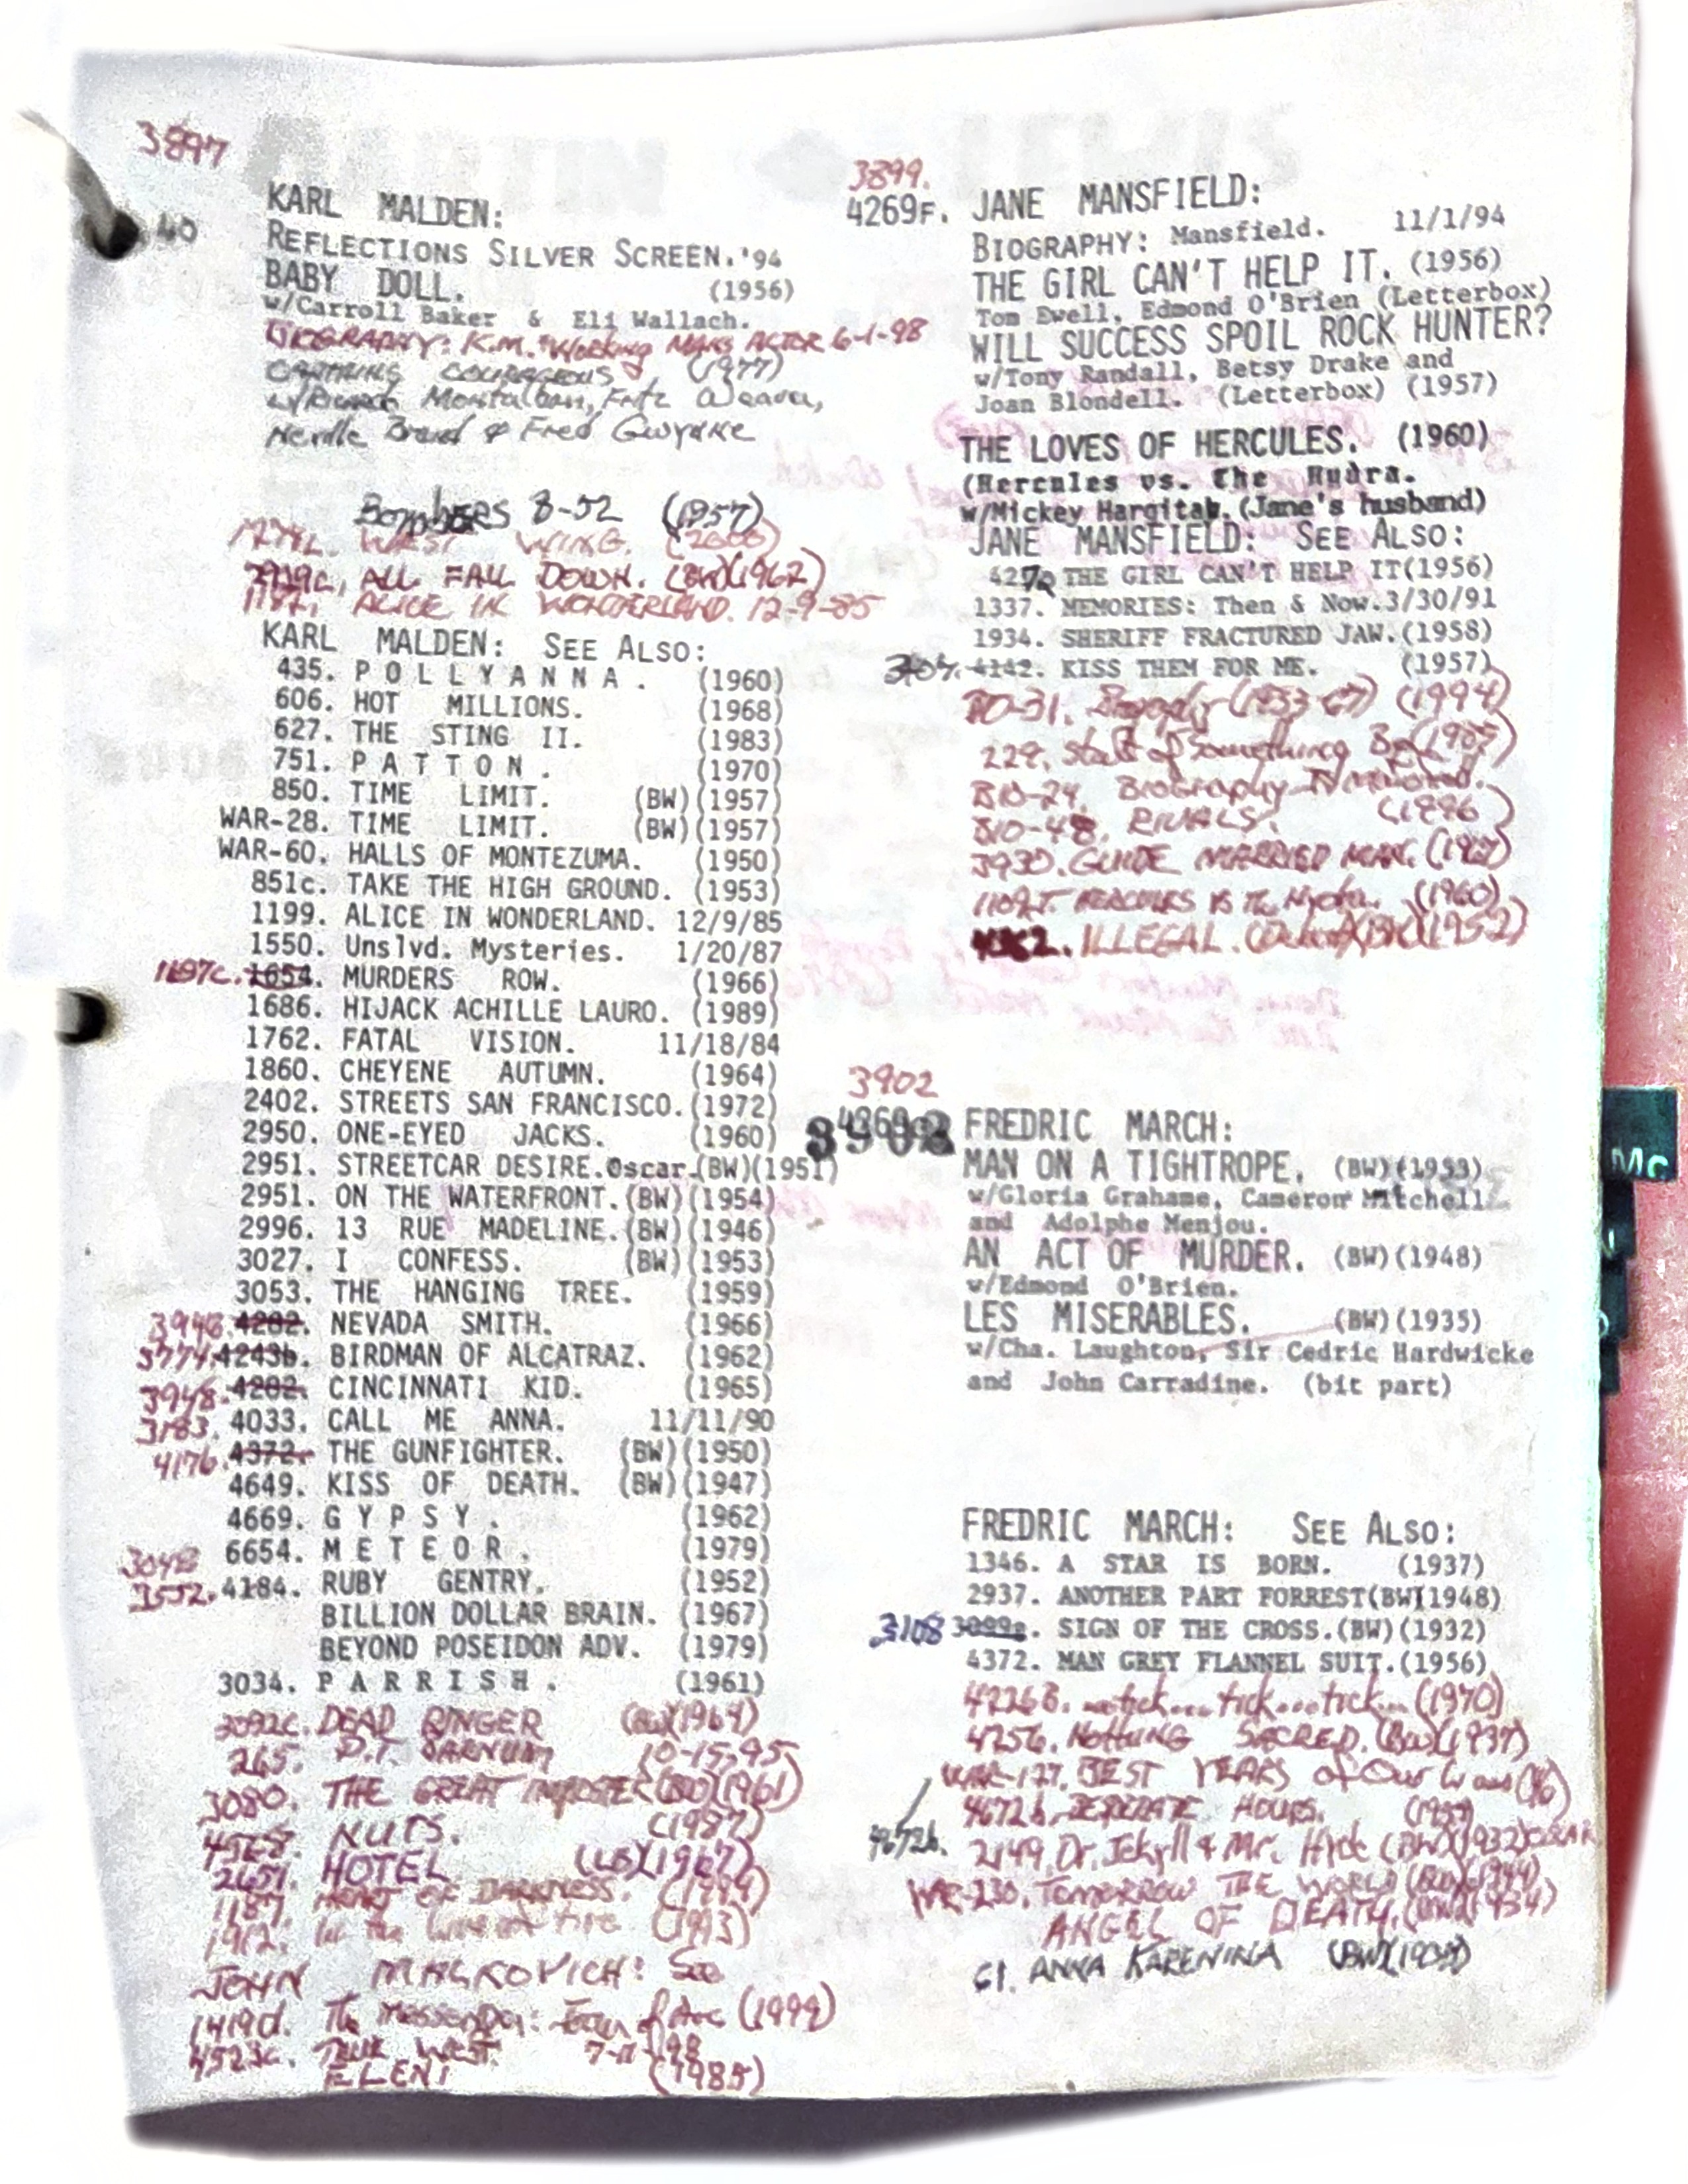 3897
KARL MALDEN:
REFLECTIONS SILVER SCREEN.'94
BABY DOLL. (1956)
w/Carroll Baker & Eli Wallach.
BIOGRAPHY: K.M. "Working Mans Actor 6-1-98
CAPTAINS COURAGEOUS (1977)
w/Ricardo Montalban, Fritz Weaver,
Neville Brand & Fred Gwynne
Bombers B-52 (1957)
WEST WING. (2000)
ALL FALL DOWN. (BW)(1962)
ALICE IN WONDERLAND. 12-9-85
KARL MALDEN: SEE ALSO:
435. POLLYANNA. (1960)
606. HOT MILLIONS. (1968)
627. THE STING II. (1983)
751. PATTON. (1970)
850. TIME LIMIT. (BW)(1957)
WAR-28. TIME LIMIT. (BW)(1957)
WAR-60. HALLS OF MONTEZUMA. (1950)
851c. TAKE THE HIGH GROUND. (1953)
1199. ALICE IN WONDERLAND. 12/9/85
1550. Unslvd. Mysteries. 1/20/87
1187c. 1654. MURDERS ROW. (1966)
1686. HIJACK ACHILLE LAURO. (1989)
1762. FATAL VISION. 11/18/84
1860. CHEYENE AUTUMN. (1964)
2402. STREETS SAN FRANCISCO. (1972)
2950. ONE-EYED JACKS. (1960)
2951. STREETCAR DESIRE.Oscar.(BW)(1951)
2951. ON THE WATERFRONT.(BW)(1954)
2996. 13 RUE MADELINE.(BW)(1946)
3027. I CONFESS. (BW)(1953)
3053. THE HANGING TREE. (1959)
3948. 4282. NEVADA SMITH. (1966)
3774. 4243b. BIRDMAN OF ALCATRAZ. (1962)
3948. 4282. CINCINNATI KID. (1965)
3183. 4033. CALL ME ANNA. 11/11/90
4176. 4372. THE GUNFIGHTER. (BW)(1950)
4649. KISS OF DEATH. (BW)(1947)
4669. GYPSY. (1962)
6654. METEOR. (1979)
3048
3552. 4184. RUBY GENTRY. (1952)
BILLION DOLLAR BRAIN. (1967)
BEYOND POSEIDON ADV. (1979)
3034. PARRISH. (1961)
3092c. DEAD RINGER (BW)(1964)
265. P.T. BARNUM 10-15-95
3080. THE GREAT IMPOSTER (BW)(1961)
NUTS. (1987)
2651. HOTEL (LB)(1967)
1187. HEART OF DARKNESS. (1994)
1912. In the line of fire (1993)
JOHN MALKOVICH: See
1419d. The Messenger: Joan of Arc (1999)
4523c. TRUE WEST. 7-11-98
ELENI (1985)
3899.
4269F. JANE MANSFIELD:
BIOGRAPHY: Mansfield. 11/1/94
THE GIRL CAN'T HELP IT. (1956)
Tom Ewell, Edmond O'Brien (Letterbox)
WILL SUCCESS SPOIL ROCK HUNTER?
w/Tony Randall, Betsy Drake and
Joan Blondell. (Letterbox) (1957)
THE LOVES OF HERCULES. (1960)
(Hercules vs. The Hydra.
w/Mickey Hargitab. (Jane's husband)
JANE MANSFIELD: SEE ALSO:
THE GIRL CAN'T HELP IT(1956)
1337. MEMORIES: Then & Now.3/30/91
1934. SHERIFF FRACTURED JAW.(1958)
4142. KISS THEM FOR ME. (1957)
BIO-31. Biography (1933-67) (1994)
229. Start of Something Big (1985)
BIO-24. Biography
BIO-48. RIVALS. (1996)
3930. GUIDE MARRIED MAN. (1967)
1109T. HERCULES VS The Hydra. (1960)
ILLEGAL.
3902
3902
FREDRIC MARCH:
MAN ON A TIGHTROPE. (BW)(1953)
w/Gloria Grahame, Cameron Mitchell
and Adolphe Menjou.
AN ACT OF MURDER. (BW)(1948)
w/Edmond O'Brien.
LES MISERABLES. (BW)(1935)
w/Cha. Laughton, Sir Cedric Hardwicke
and John Carradine. (bit part)
FREDRIC MARCH: SEE ALSO:
1346. A STAR IS BORN. (1937)
2937. ANOTHER PART FORREST(BW)(1948)
3108 3099a. SIGN OF THE CROSS.(BW)(1932)
4372. MAN GREY FLANNEL SUIT.(1956)
4226B. ...tick...tick...tick... (1970)
4256. NOTHING SACRED. (BW)(1937)
WAR-177. BEST YEARS of Our Lives (46)
4672b. DESPERATE HOURS. (1955)
4672b. 2149. Dr. Jekyll & Mr. Hyde (BW)(1932) OSCAR
WAR-230. TOMORROW THE WORLD (BW)(1944)
ANGEL OF DEATH. (BW)(1934)
61. ANNA KARENINA (BW)(1935)
Mc